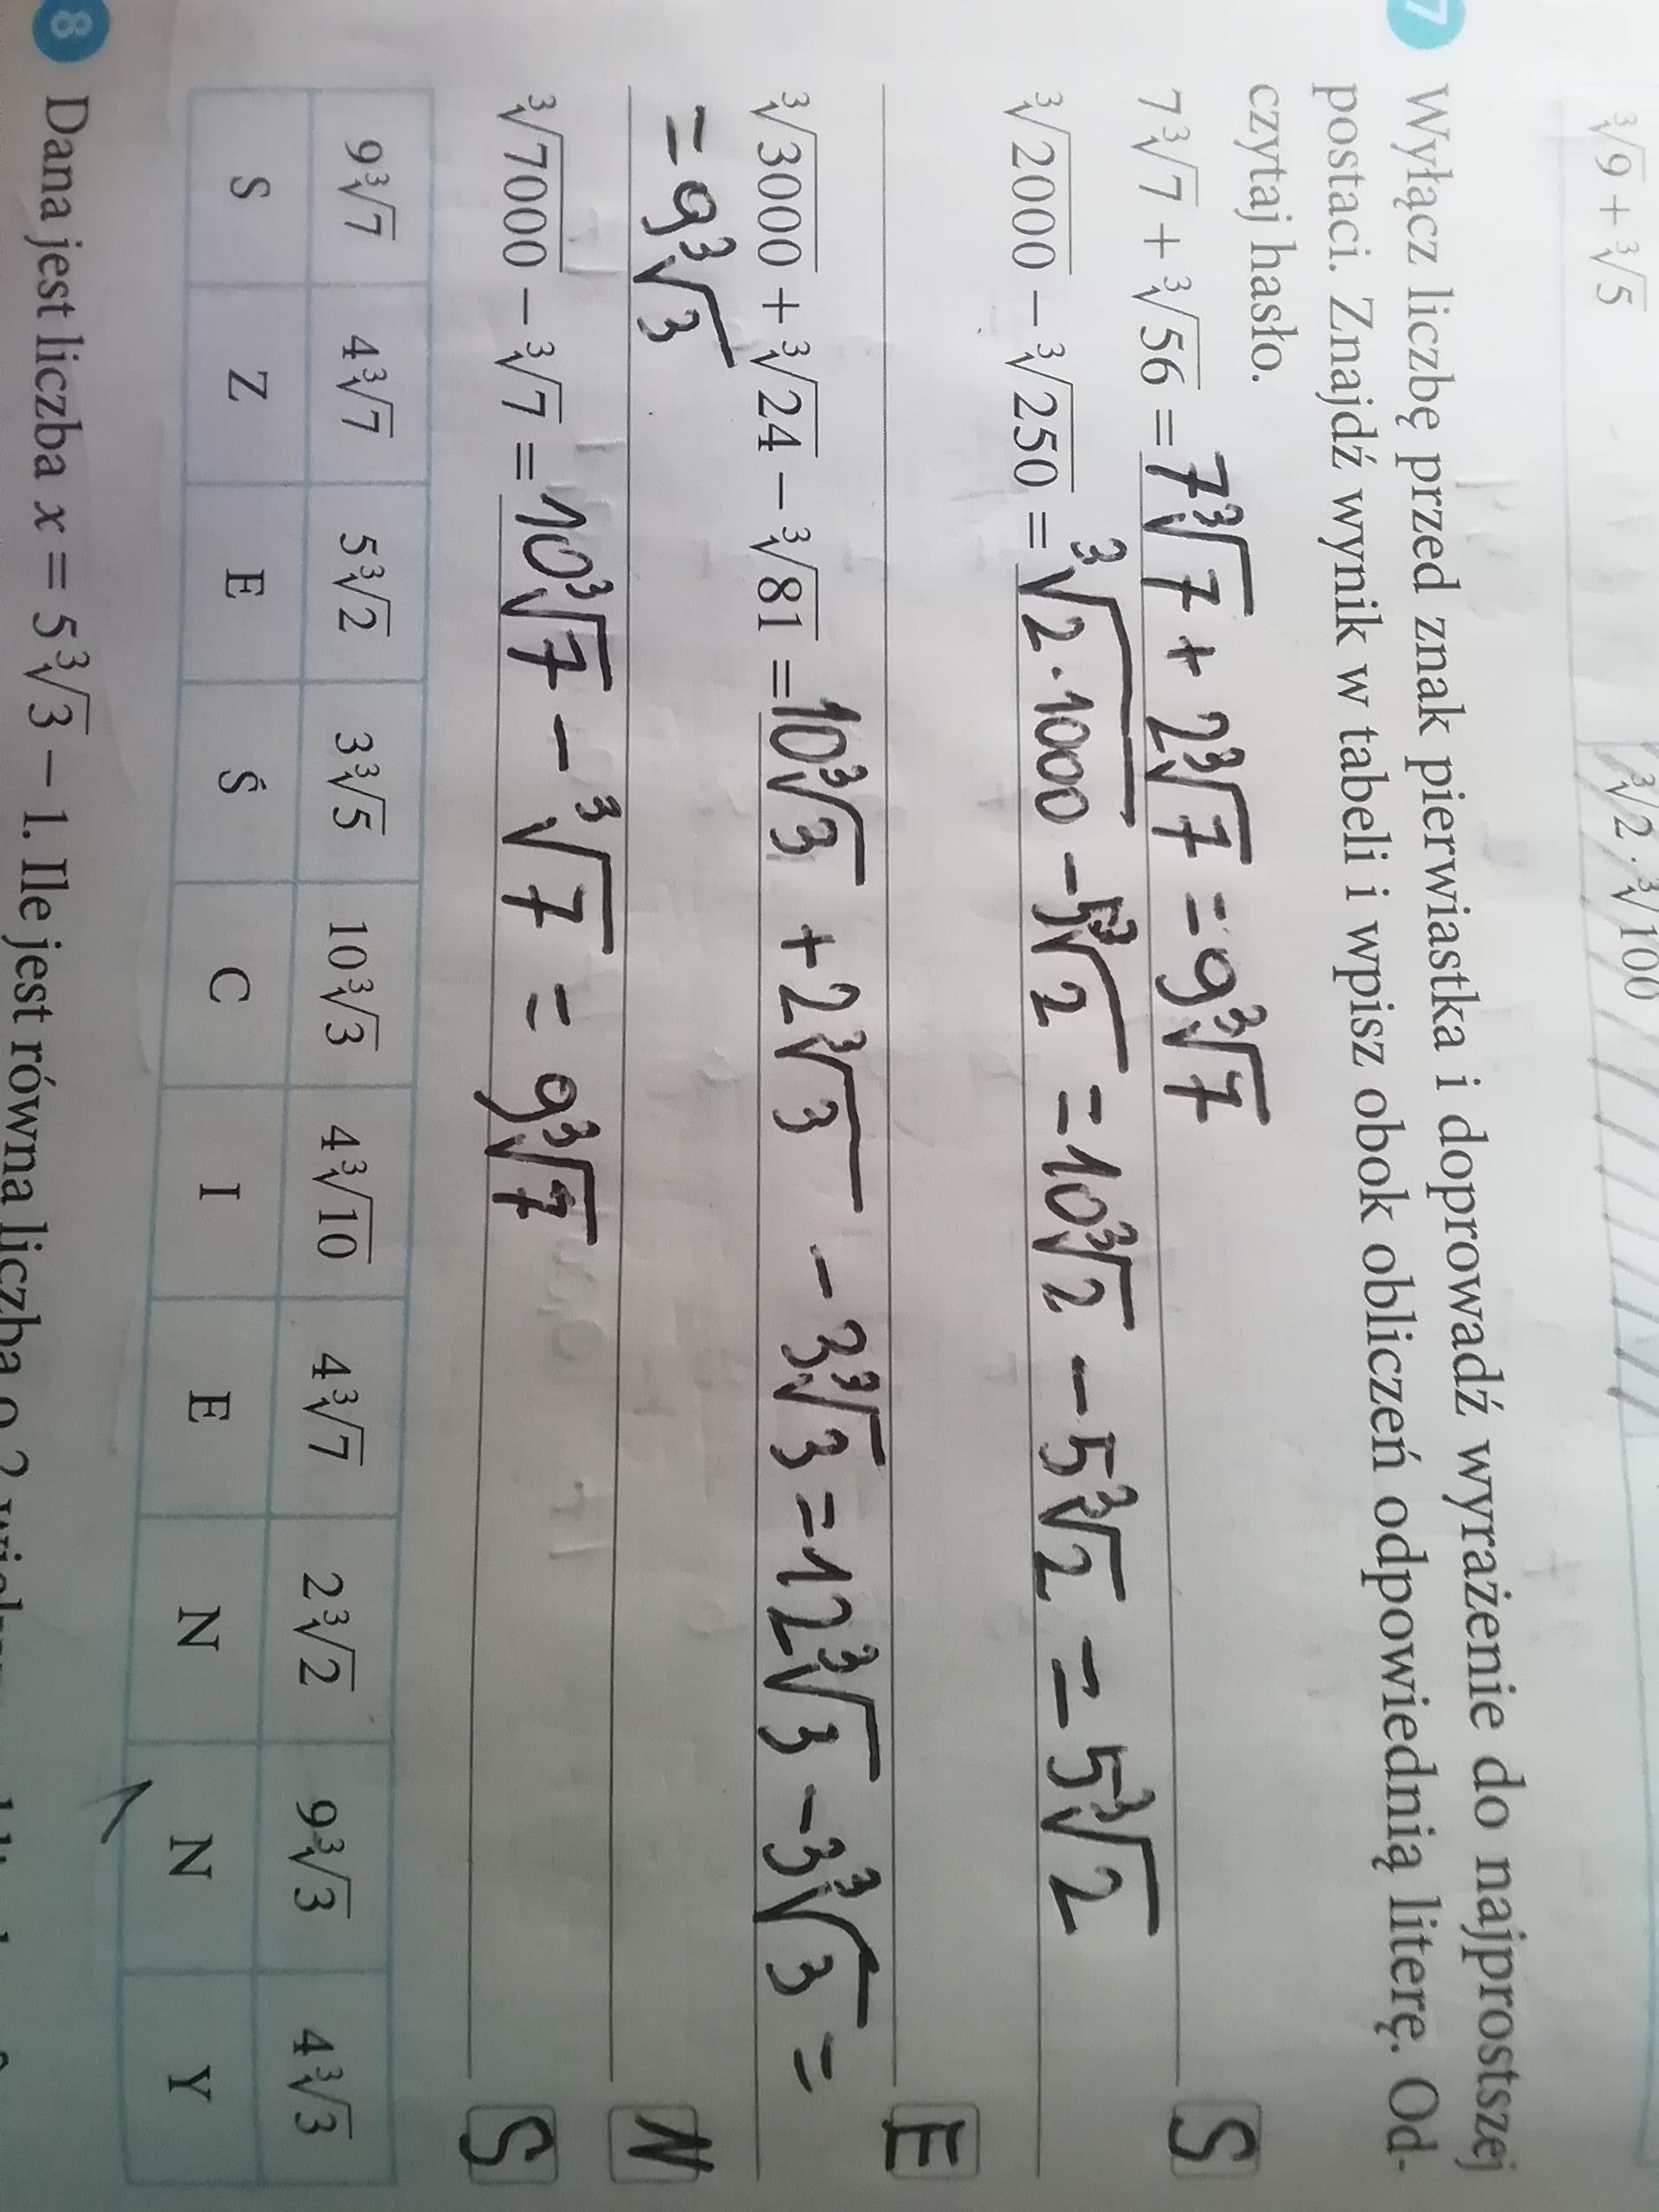 ∛9 + ∛5 ∛2 · ∛100
7 Wyłącz liczbę przed znak pierwiastka i doprowadź wyrażenie do najprostszej
postaci. Znajdź wynik w tabeli i wpisz obok obliczeń odpowiednią literę. Od-
czytaj hasło.
7∛7 + ∛56 = 7∛7 + 2∛7 = 9∛7 S
∛2000 − ∛250 = ∛2·1000 − 5∛2 = 10∛2 − 5∛2 = 5∛2
E
∛3000 + ∛24 − ∛81 = 10∛3 + 2∛3 − 3∛3 = 12∛3 − 3∛3 =
= 9∛3 N
∛7000 − ∛7 = 10∛7 − ∛7 = 9∛7 S
9∛7 4∛7 5∛2 3∛5 10∛3 4∛10 4∛7 2∛2 9∛3 4∛3
S Z E Ś C I E N N Y
8 Dana jest liczba x = 5∛3 − 1. Ile jest równa liczba o 2